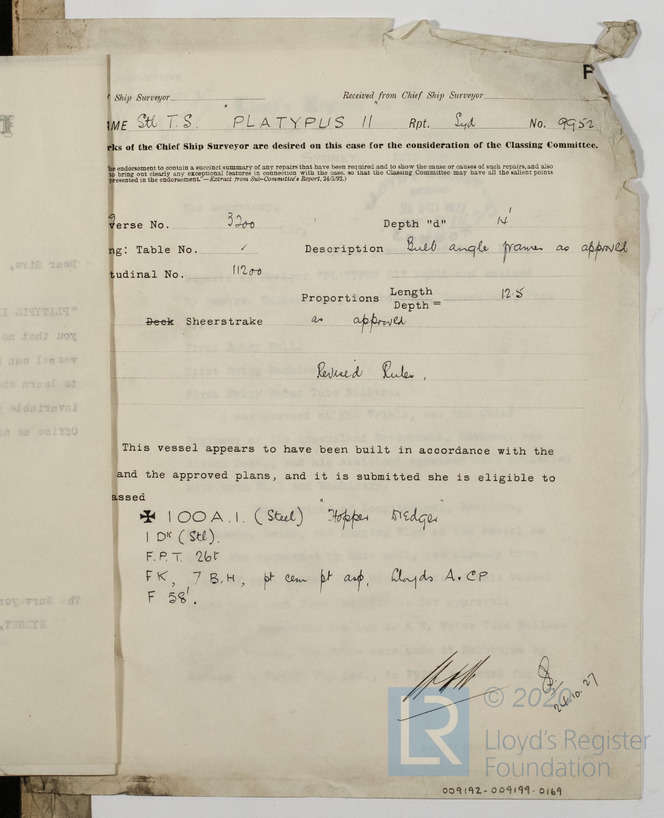 Ship Surveyor Received from Chief Ship Surveyor
AME Stl T.S. PLATYPUS II Rpt. Syd No. 9952
rks of the Chief Ship Surveyor are desired on this case for the consideration of the Classing Committee.
he endorsement to contain a succinct summary of any repairs that have been required and to show the cause or causes of such repairs, and also
to bring out clearly any exceptional features in connection with the case, so that the Classing Committee may have all the salient points
presented in the endorsement."—Extract from Sub-Committee's Report, 24/5/92.)
verse No. 3200 Depth "d" 14'
ng: Table No. ✓ Description Bulb angle frames as approved
tudinal No. 11200
Proportions Length
Depth = 12.5
Deck Sheerstrake as approved
Revised Rules.
This vessel appears to have been built in accordance with the
and the approved plans, and it is submitted she is eligible to
assed
✠ 100A.1. (Steel) "Hopper Dredger"
1 Dk (Stl).
F.P.T. 26t
FK, 7 B.H, pt cem pt asp, Lloyds A.CP
F 58'.
24.10.27
© 2020
LR
Lloyd's Register
Foundation
009192-009199-0169